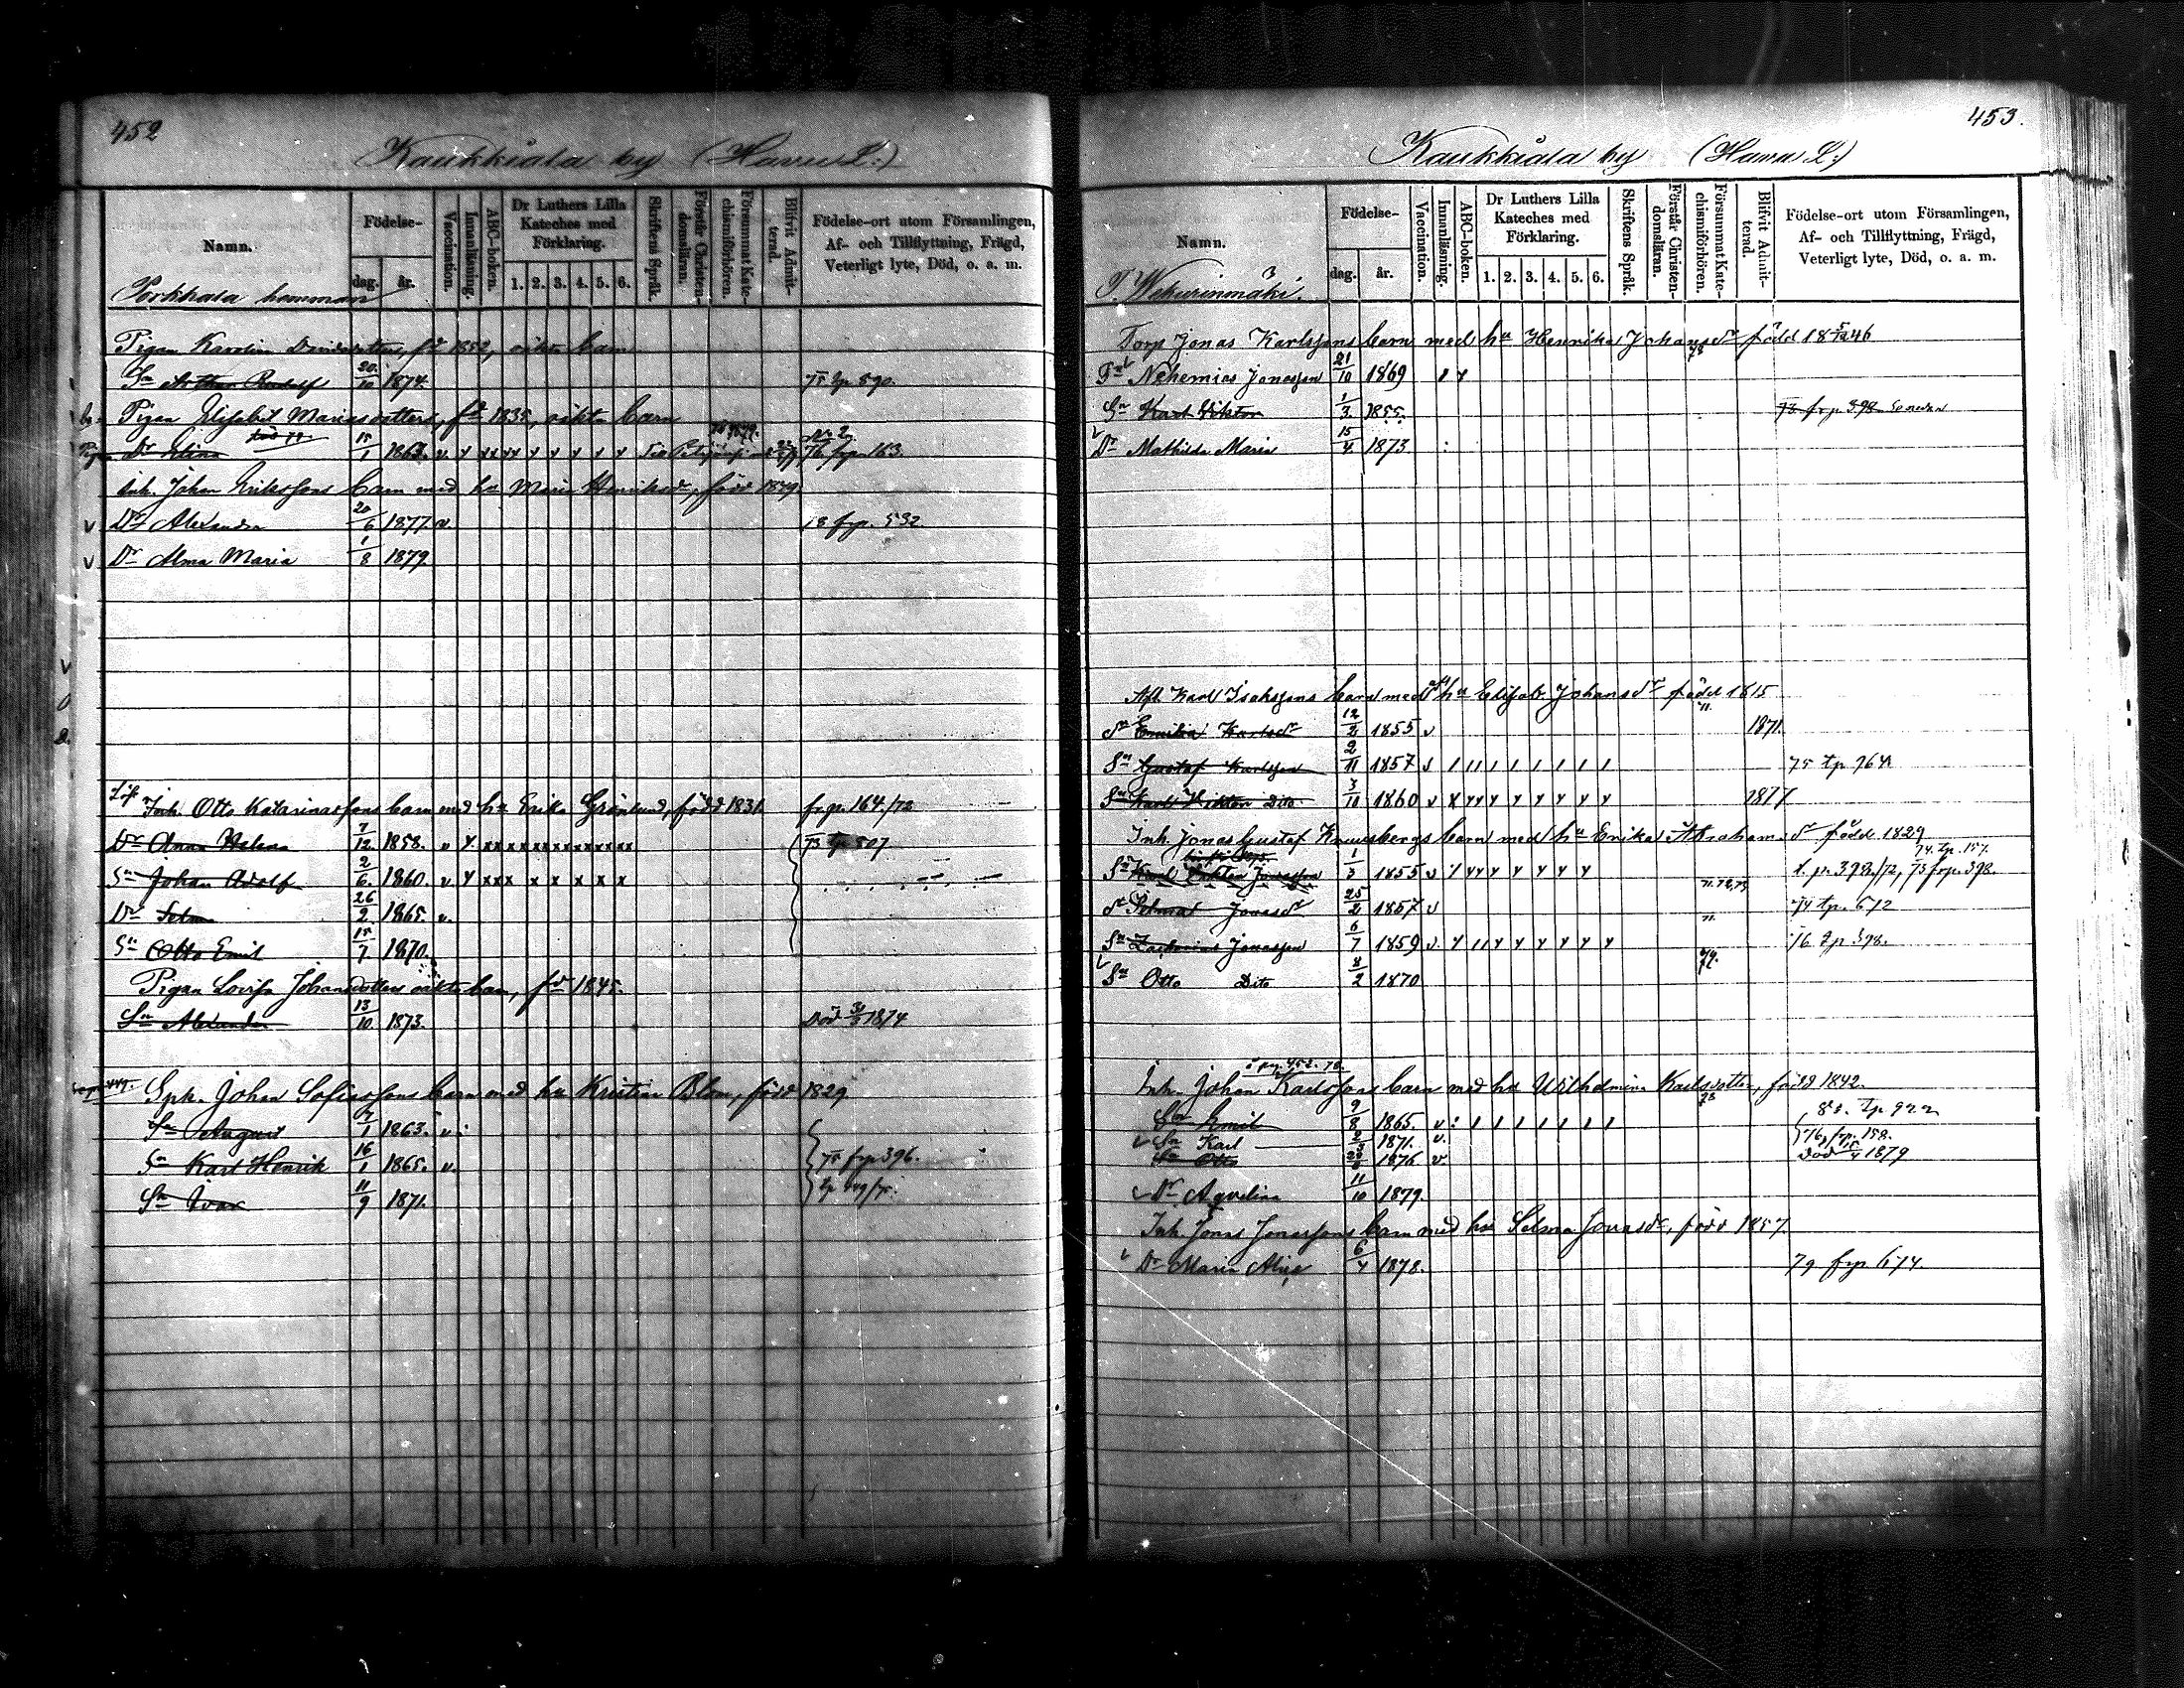 452
Kaukkiala by (Havu L:)
Namn.
Porkkala hemman
Födelse-
dag.
år.
Vaccination.
Innanläsning.
ABC-boken.
Dr Luthers Lilla
Kateches med
Förklaring.
1. 2. 3. 4. 5. 6.
Skriftens Språk.
Förstår Christen-
domsläran.
Försummat Kate-
chismiförhören.
Blifvit Admit-
terad.
Födelse-ort utom Församlingen,
Af- och Tillflyttning, Frägd,
Veterligt lyte, Död, o. a. m.
Pigan Karolin Davidsdotters, fd 1852, oäkta barn
Sn Arthur Rudolf 20/10 1874. 75 tp 590.
Pigan Elisabet Mariasdotters, fd 1835, oäkta barn
Dr Elina 15/1 v y xx x x v v v v 76 frp 163.
Inh. Johan Erikssons barn med hu Maria Henriksdr, född 1849.
Alexander 20/6 1877. v. 78 frp. 532
Dr Alma Maria 1/8 1879.
Inh. Otto Katarinassons barn med hu Erika Grönlund, född 1831. frp. 164./72
Dr Anna Helena 7/12 1858. v y xx x x x x x x 73 tp 507
Sn Johan Adolf 2/6. 1860. v y xxx x x x x x
Dr Selma 26/2. 1865. v.
Sn Otto Emil 15/7 1870.
Pigan Lovisa Johansdotters oäkta barn, fd 1845.
Sn Alexander 13/10 1873. Död 1874
Sph. Johan Sofiassons barn med hu Kristina Blom, född 1829
Sn August 7/1 1863. v.
Sn Karl Henrik 16/1 1865. v. 75 frp 396.
Sn Ivar 11/9 1871. tp 449
453.
Kaukkiala by (Havu L:)
Namn.
T. Wekurinmäki.
Födelse-
dag.
år.
Vaccination.
Innanläsning.
ABC-boken.
Dr Luthers Lilla
Kateches med
Förklaring.
1. 2. 3. 4. 5. 6.
Skriftens Språk.
Förstår Christen-
domsläran.
Försummat Kate-
chismiförhören.
Blifvit Admit-
terad.
Födelse-ort utom Församlingen,
Af- och Tillflyttning, Frägd,
Veterligt lyte, Död, o. a. m.
Torp Jonas Karlssons barn med hu Henrika Johansdr född 18 5/12 46
Nehemias Jonasson 21/10 1869
Sn Karl Viktor 1/3 1855. 73 frp 398
Dr Mathilda Maria 15/4 1873
Afl. Karl Isakssons barn med hu Elisab. Johansdr född 1815
Dr Emilia Karlsdr 12/2 1855 v 1871.
Sn Gustaf Karlsson 2/11 1857 v 75 tp 764
Sn Karl Viktor Dito 3/10 1860 v x yy y y y y y y 1877
Inh. Jonas Gustaf barn med hu Erika Abrahamsdr född 1829
74. tp. 157.
Sn Karl Viktor Jonasson 1/3 1855 v 73 frp. 398.
Dr Selma Jonasdr 25/2 1857 v 74 tp. 672
Sn Zacharias Jonasson 6/7 1859 v 76 tp 398.
Sn Otto Dito 8/2 1870
Inh. Johan Karlssons barn med hu Wilhelmina Karlsdotter, född 1842.
Sn Emil 9/8 1865. v. tp 922
Sn Karl 1871. v. 76, frp. 158.
Sn Otto 1876. v. Död 1879
Dr Aqvelina 11/10 1879.
Inh. Jonas Jonassons barn med hu Selma Jonasdr, född 1857.
Dr Maria Alice 6/4 1878. 79 frp 674.